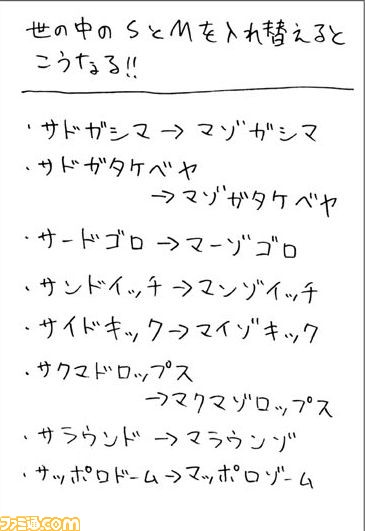 世の中のSとMを入れ替えると
こうなる!!
・サドガシマ→マゾガシマ
・サドガタケベヤ
→マゾガタケベヤ
・サードゴロ→マーゾゴロ
・サンドイッチ→マンゾイッチ
・サイドキック→マイゾキック
・サクマドロップス
→マクマゾロップス
・サラウンド→マラウンゾ
・サッポロドーム→マッポロゾーム
ファミ通.com